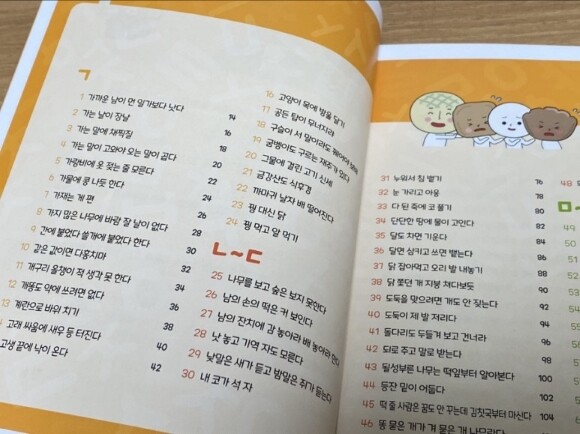 ㄱ
1 가까운 남이 먼 일가보다 낫다
2 가는 날이 장날 14
3 가는 말에 채찍질 16
4 가는 말이 고와야 오는 말이 곱다 18
5 가랑비에 옷 젖는 줄 모른다 20
6 가물에 콩 나듯 한다 22
7 가재는 게 편 24
8 가지 많은 나무에 바람 잘 날이 없다 26
9 간에 붙었다 쓸개에 붙었다 한다 28
10 같은 값이면 다홍치마 30
11 개구리 올챙이 적 생각 못 한다 32
12 개똥도 약에 쓰려면 없다 34
13 계란으로 바위 치기 36
고래 싸움에 새우 등 터진다 38
고생 끝에 낙이 온다 40
42
16 고양이 목에 방울 달기
17 공든 탑이 무너지랴
18 구슬이 서 말이라도 꿰어야 보배
19 굼벵이도 구르는 재주가 있다
20 그물에 걸린 고기 신세
21 금강산도 식후경
22 까마귀 날자 배 떨어진다
23 꿩 대신 닭
24 꿩 먹고 알 먹기
ㄴ~ㄷ
25 나무를 보고 숲은 보지 못한다
26 남의 손의 떡은 커 보인다
27 남의 잔치에 감 놓아라 배 놓아라 한다
28 낫 놓고 기역 자도 모른다
29 낮말은 새가 듣고 밤말은 쥐가 듣는다
30 내 코가 석 자
31 누워서 침 뱉기 76
32 눈 가리고 아웅 78
33 다 된 죽에 코 풀기 80
34 단단한 땅에 물이 고인다 82
35 달도 차면 기운다 84
36 달면 삼키고 쓰면 뱉는다 86
37 닭 잡아먹고 오리 발 내놓기 88
38 닭 쫓던 개 지붕 쳐다보듯 90
39 도둑을 맞으려면 개도 안 짖는다 92
40 도둑이 제 발 저리다 94
41 돌다리도 두들겨 보고 건너라 96
42 되로 주고 말로 받는다 98
43 될성부른 나무는 떡잎부터 알아본다 100
44 등잔 밑이 어둡다 102
45 떡 줄 사람은 꿈도 안 꾸는데 김칫국부터 마신다 104
46 똥 묻은 개가 겨 묻은 개 나무란다
48
49
50
51